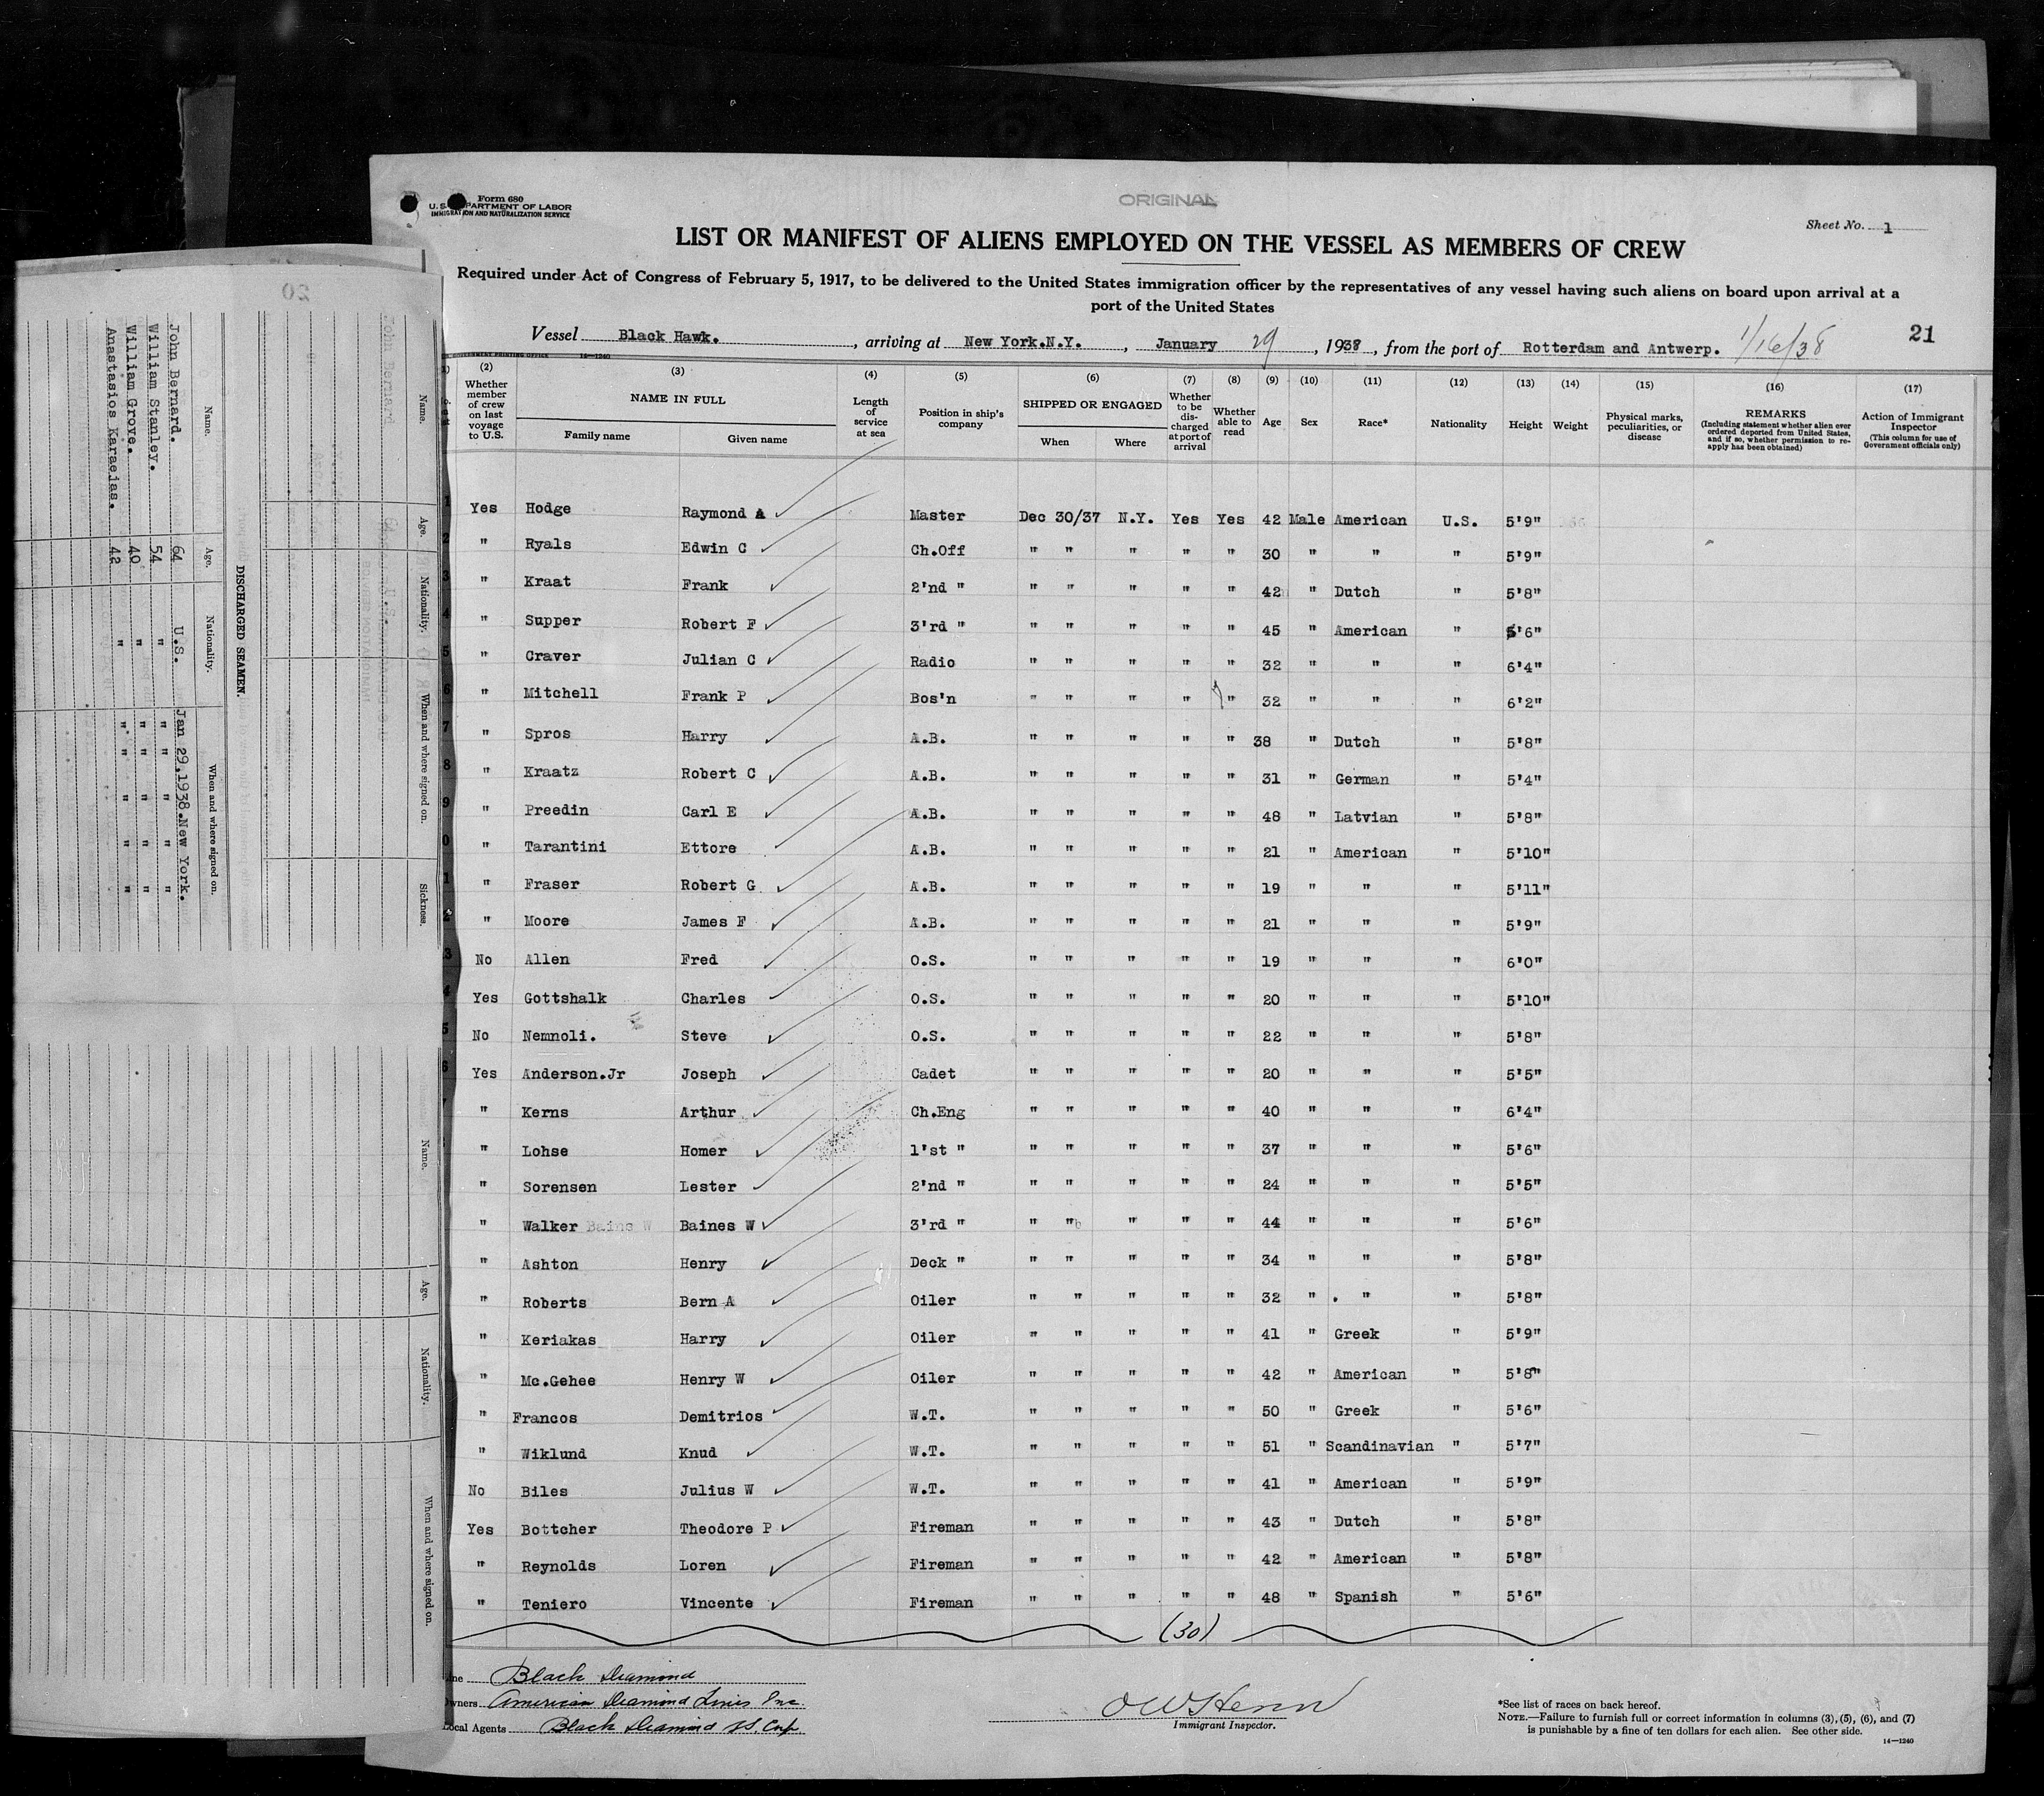 Form 680
U. S. DEPARTMENT OF LABOR
IMMIGRATION AND NATURALIZATION SERVICE
ORIGINAL
Sheet No. 1
LIST OR MANIFEST OF ALIENS EMPLOYED ON THE VESSEL AS MEMBERS OF CREW
Required under Act of Congress of February 5, 1917, to be delivered to the United States immigration officer by the representatives of any vessel having such aliens on board upon arrival at a
port of the United States
Vessel Black Hawk. , arriving at New York.N.Y. , January 29 , 1938 , from the port of Rotterdam and Antwerp. 1/16/38
21
14—1240
(2) Whether member of crew on last voyage to U.S.
(3) NAME IN FULL Family name Given name
(4) Length of service at sea
(5) Position in ship's company
(6) SHIPPED OR ENGAGED When Where
(7) Whether to be discharged at port of arrival
(8) Whether able to read
(9) Age
(10) Sex
(11) Race*
(12) Nationality
(13) Height
(14) Weight
(15) Physical marks, peculiarities, or disease
(16) REMARKS (Including statement whether alien ever ordered deported from United States, and if so, whether permission to re-apply has been obtained)
(17) Action of Immigrant Inspector (This column for use of Government officials only)
1 Yes Hodge Raymond A Master Dec 30/37 N.Y. Yes Yes 42 Male American U.S. 5'9"
2 " Ryals Edwin C Ch.Off " " " " " 30 " " " 5'9"
3 " Kraat Frank 2'nd " " " " " " 42 " Dutch " 5'8"
4 " Supper Robert F 3'rd " " " " " " 45 " American " 5'6"
5 " Craver Julian C Radio " " " " " 32 " " " 6'4"
6 " Mitchell Frank P Bos'n " " " " " 32 " " " 6'2"
7 " Spros Harry A.B. " " " " " 38 " Dutch " 5'8"
8 " Kraatz Robert C A.B. " " " " " 31 " German " 5'4"
9 " Preedin Carl E A.B. " " " " " 48 " Latvian " 5'8"
0 " Tarantini Ettore A.B. " " " " " 21 " American " 5'10"
1 " Fraser Robert G A.B. " " " " " 19 " " " 5'11"
2 " Moore James F A.B. " " " " " 21 " " " 5'9"
3 No Allen Fred O.S. " " " " " 19 " " " 6'0"
4 Yes Gottshalk Charles O.S. " " " " " 20 " " " 5'10"
5 No Nemnoli. Steve O.S. " " " " " 22 " " " 5'8"
6 Yes Anderson.Jr Joseph Cadet " " " " " 20 " " " 5'5"
" Kerns Arthur Ch.Eng " " " " " 40 " " " 6'4"
" Lohse Homer 1'st " " " " " " 37 " " " 5'6"
" Sorensen Lester 2'nd " " " " " " 24 " " " 5'5"
" Walker Baine W Baines W 3'rd " " " " " " 44 " " " 5'6"
" Ashton Henry Deck " " " " " " 34 " " " 5'8"
" Roberts Bern A Oiler " " " " " 32 " " " 5'8"
" Keriakas Harry Oiler " " " " " 41 " Greek " 5'9"
" Mc.Gehee Henry W Oiler " " " " " 42 " American " 5'8"
" Francos Demitrios W.T. " " " " " 50 " Greek " 5'6"
" Wiklund Knud W.T. " " " " " 51 " Scandinavian " 5'7"
No Biles Julius W W.T. " " " " " 41 " American " 5'9"
Yes Bottcher Theodore P Fireman " " " " " 43 " Dutch " 5'8"
" Reynolds Loren Fireman " " " " " 42 " American " 5'8"
" Teniero Vincente Fireman " " " " " 48 " Spanish " 5'6"
(30)
Black Diamond
Owners American Diamond Lines Inc.
Local Agents Black Diamond SS. Corp
Immigrant Inspector.
*See list of races on back hereof.
NOTE.—Failure to furnish full or correct information in columns (3), (5), (6), and (7)
is punishable by a fine of ten dollars for each alien. See other side.
14—1240
20
Name. Age. Nationality. When and where signed on. Sickness.
DISCHARGED SEAMEN.
Name. Age. Nationality. When and where signed on.
John Bernard. 64 U.S. Jan 29,1938.New York.
William Stanley. 54 " " " " " "
William Grove. 40 " " " " " "
Anastasios Karaejas. 42 " " " " " "
Name. Age. Nationality. When and where signed on.